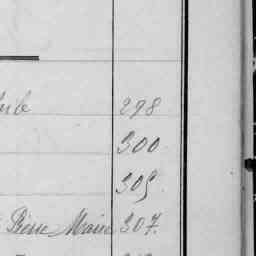 298
300
305
Pierre Marie 307.